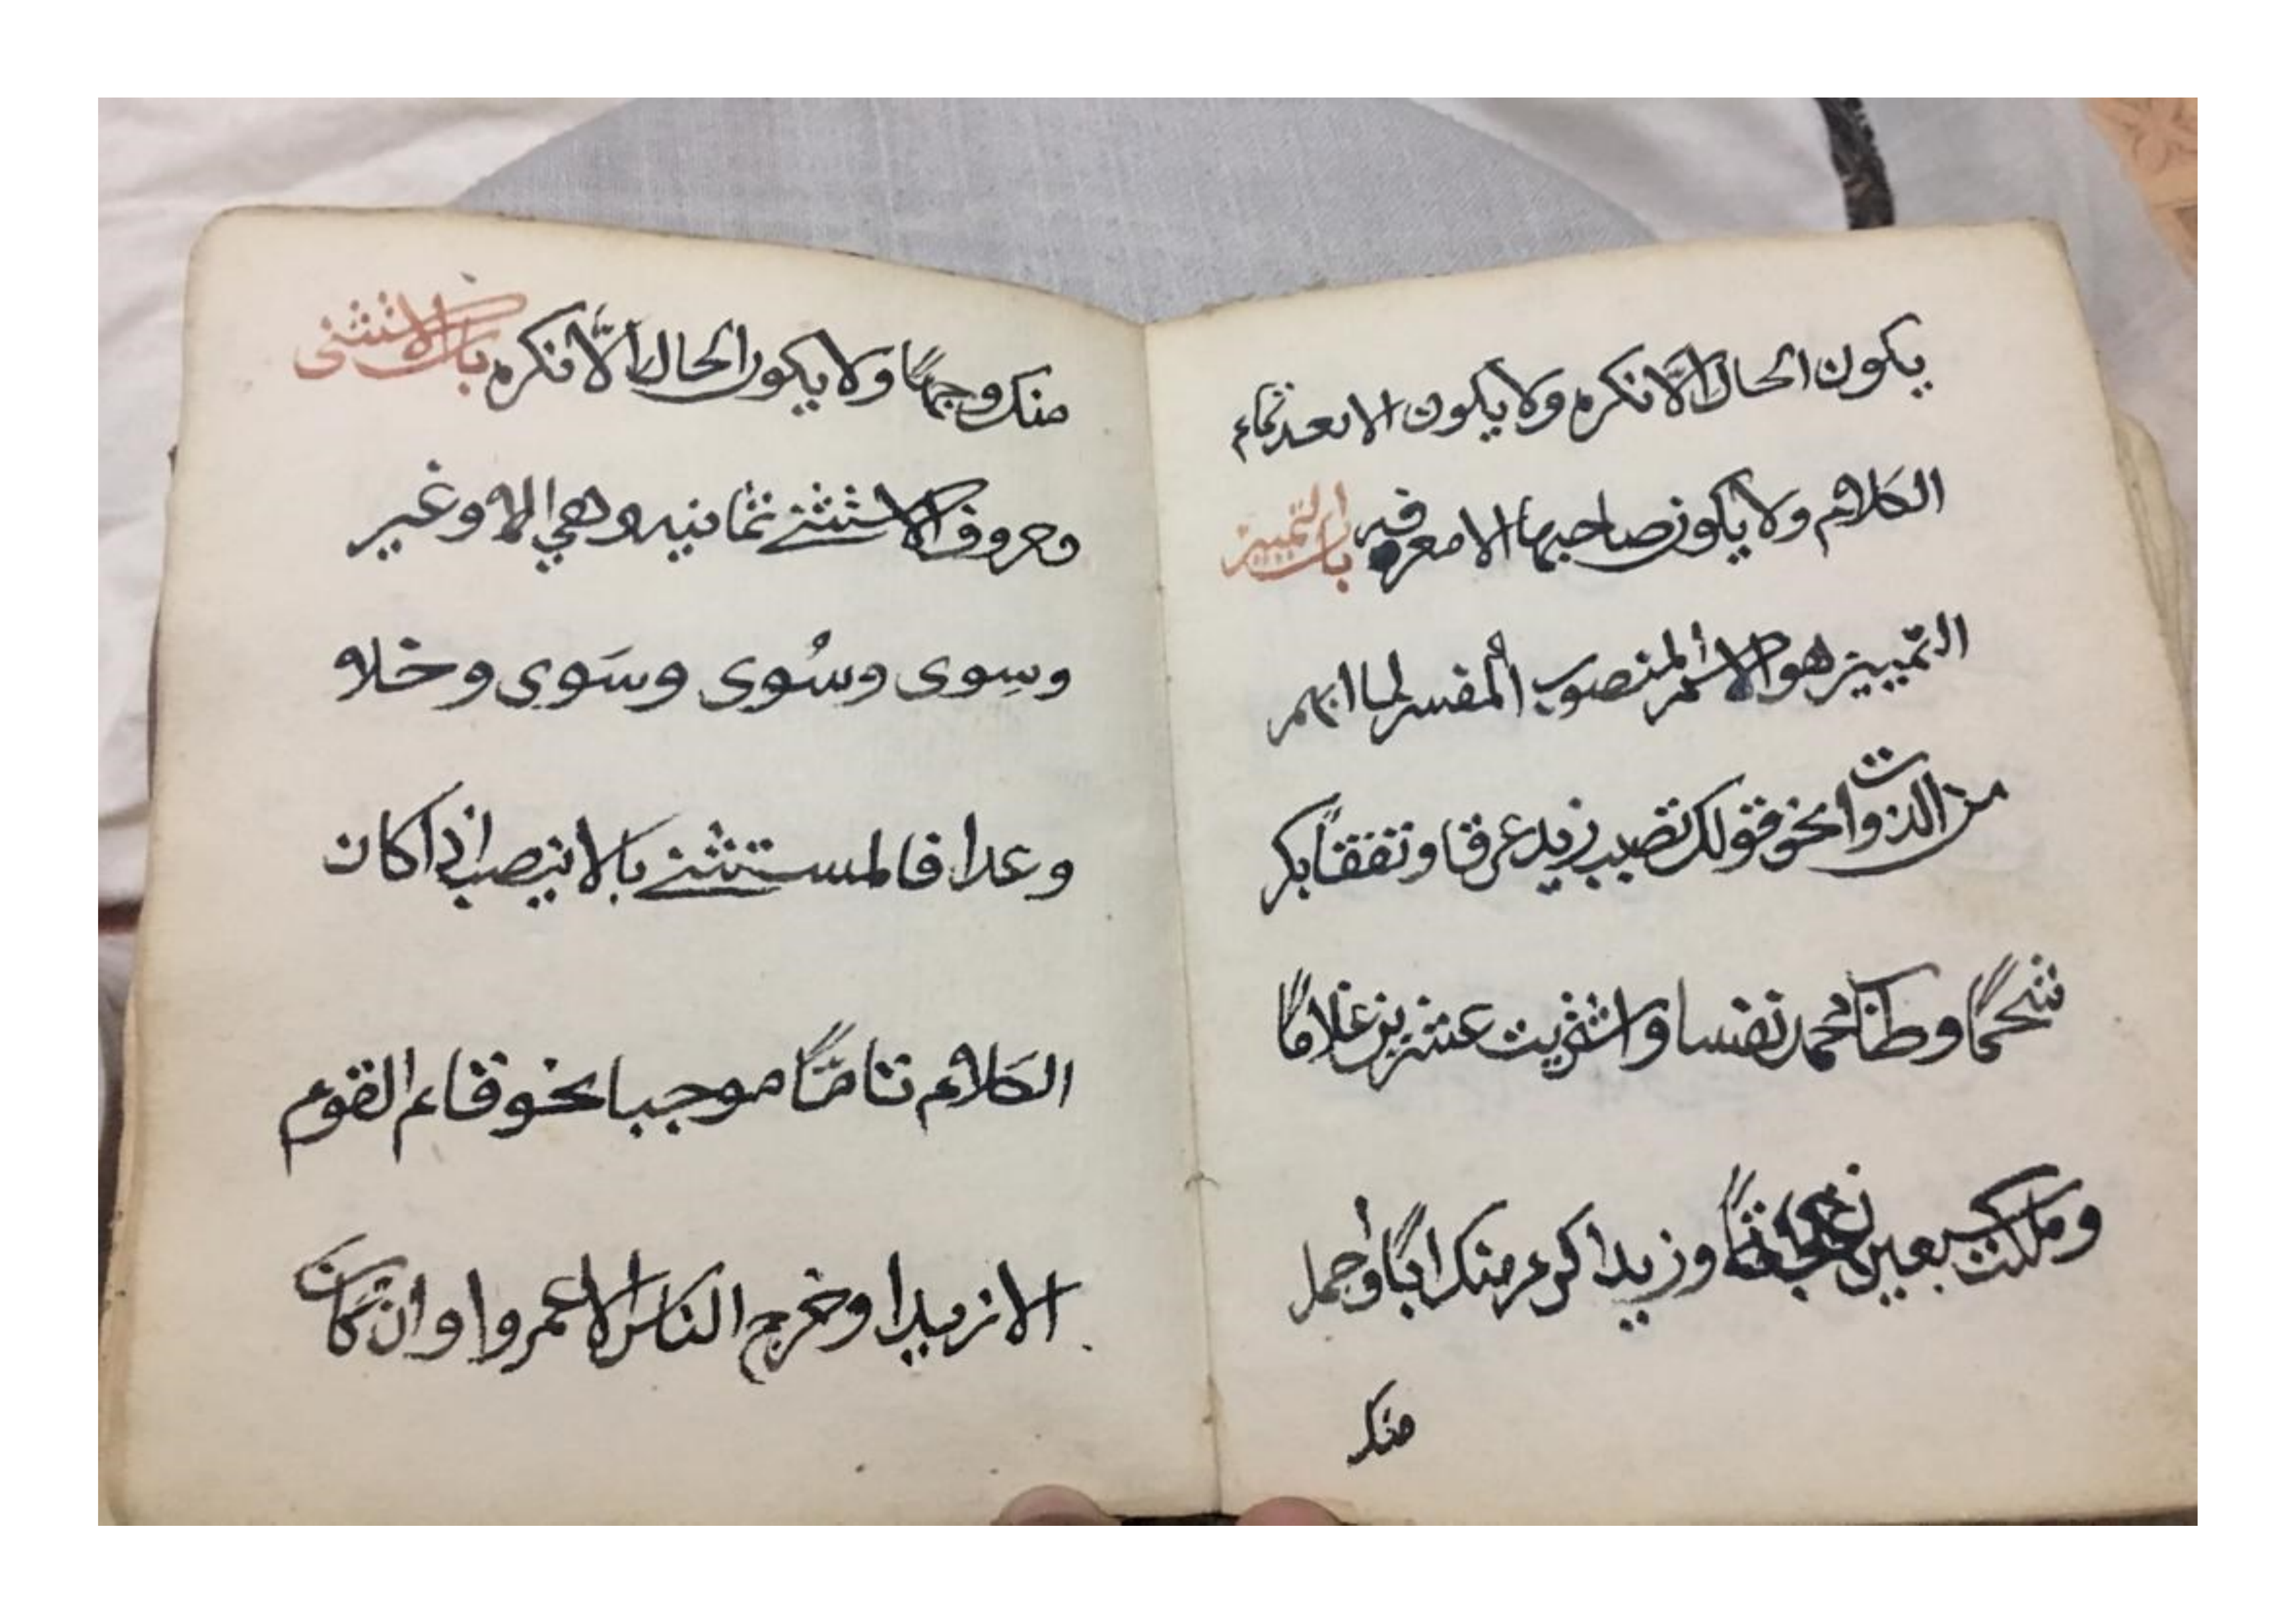 يكون الحال الا نكره ولا يكون الا بعد تمام
الكلام ولا يكون صاحبها الا معرفه باب التمييز
التمييز هو الاسم المنصوب المفسر لما ابهم
من الذوات نحو قولك تصبب زيد عرقا وتفقأ بكر
شحمًا وطاب محمد نفسا واشتريت عشرين غلامًا
وملكت تسعين نعجةً وزيد اكرم منك ابًا واجمل
منك
منك وجهًا ولا يكون الحال الّا نكره باب الاستثنى
وحروف الاستثنى ثمانيه وهي الا وغير
وسِوى وسُوى وسَوى وخلا
وعدا فالمستثنى بالا ينصب اذا كان
الكلام تامًّا موجبا نحو قام القوم
الا زيدا وخرج الناس الا عمروا وان كان